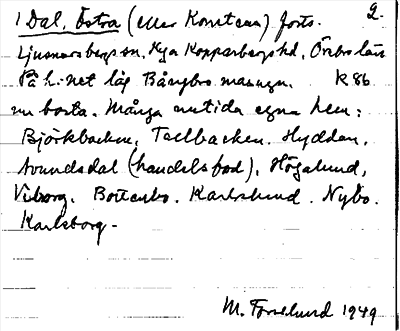 1 Dal, Östra (eller Konstens) forts. 2.
Ljusnarsbergs sn, Nya Kopparbergs hd, Örebro län
På h:net låg Bångbro masugn. K 86
nu borta. Många nutida egna hem:
Björkbacken, Tallbacken, Hyddan,
Avundsdal (handelsbod), Högalund,
Viborg, Karlslund, Nybo.
Karlsborg.
M. Forslund 1949